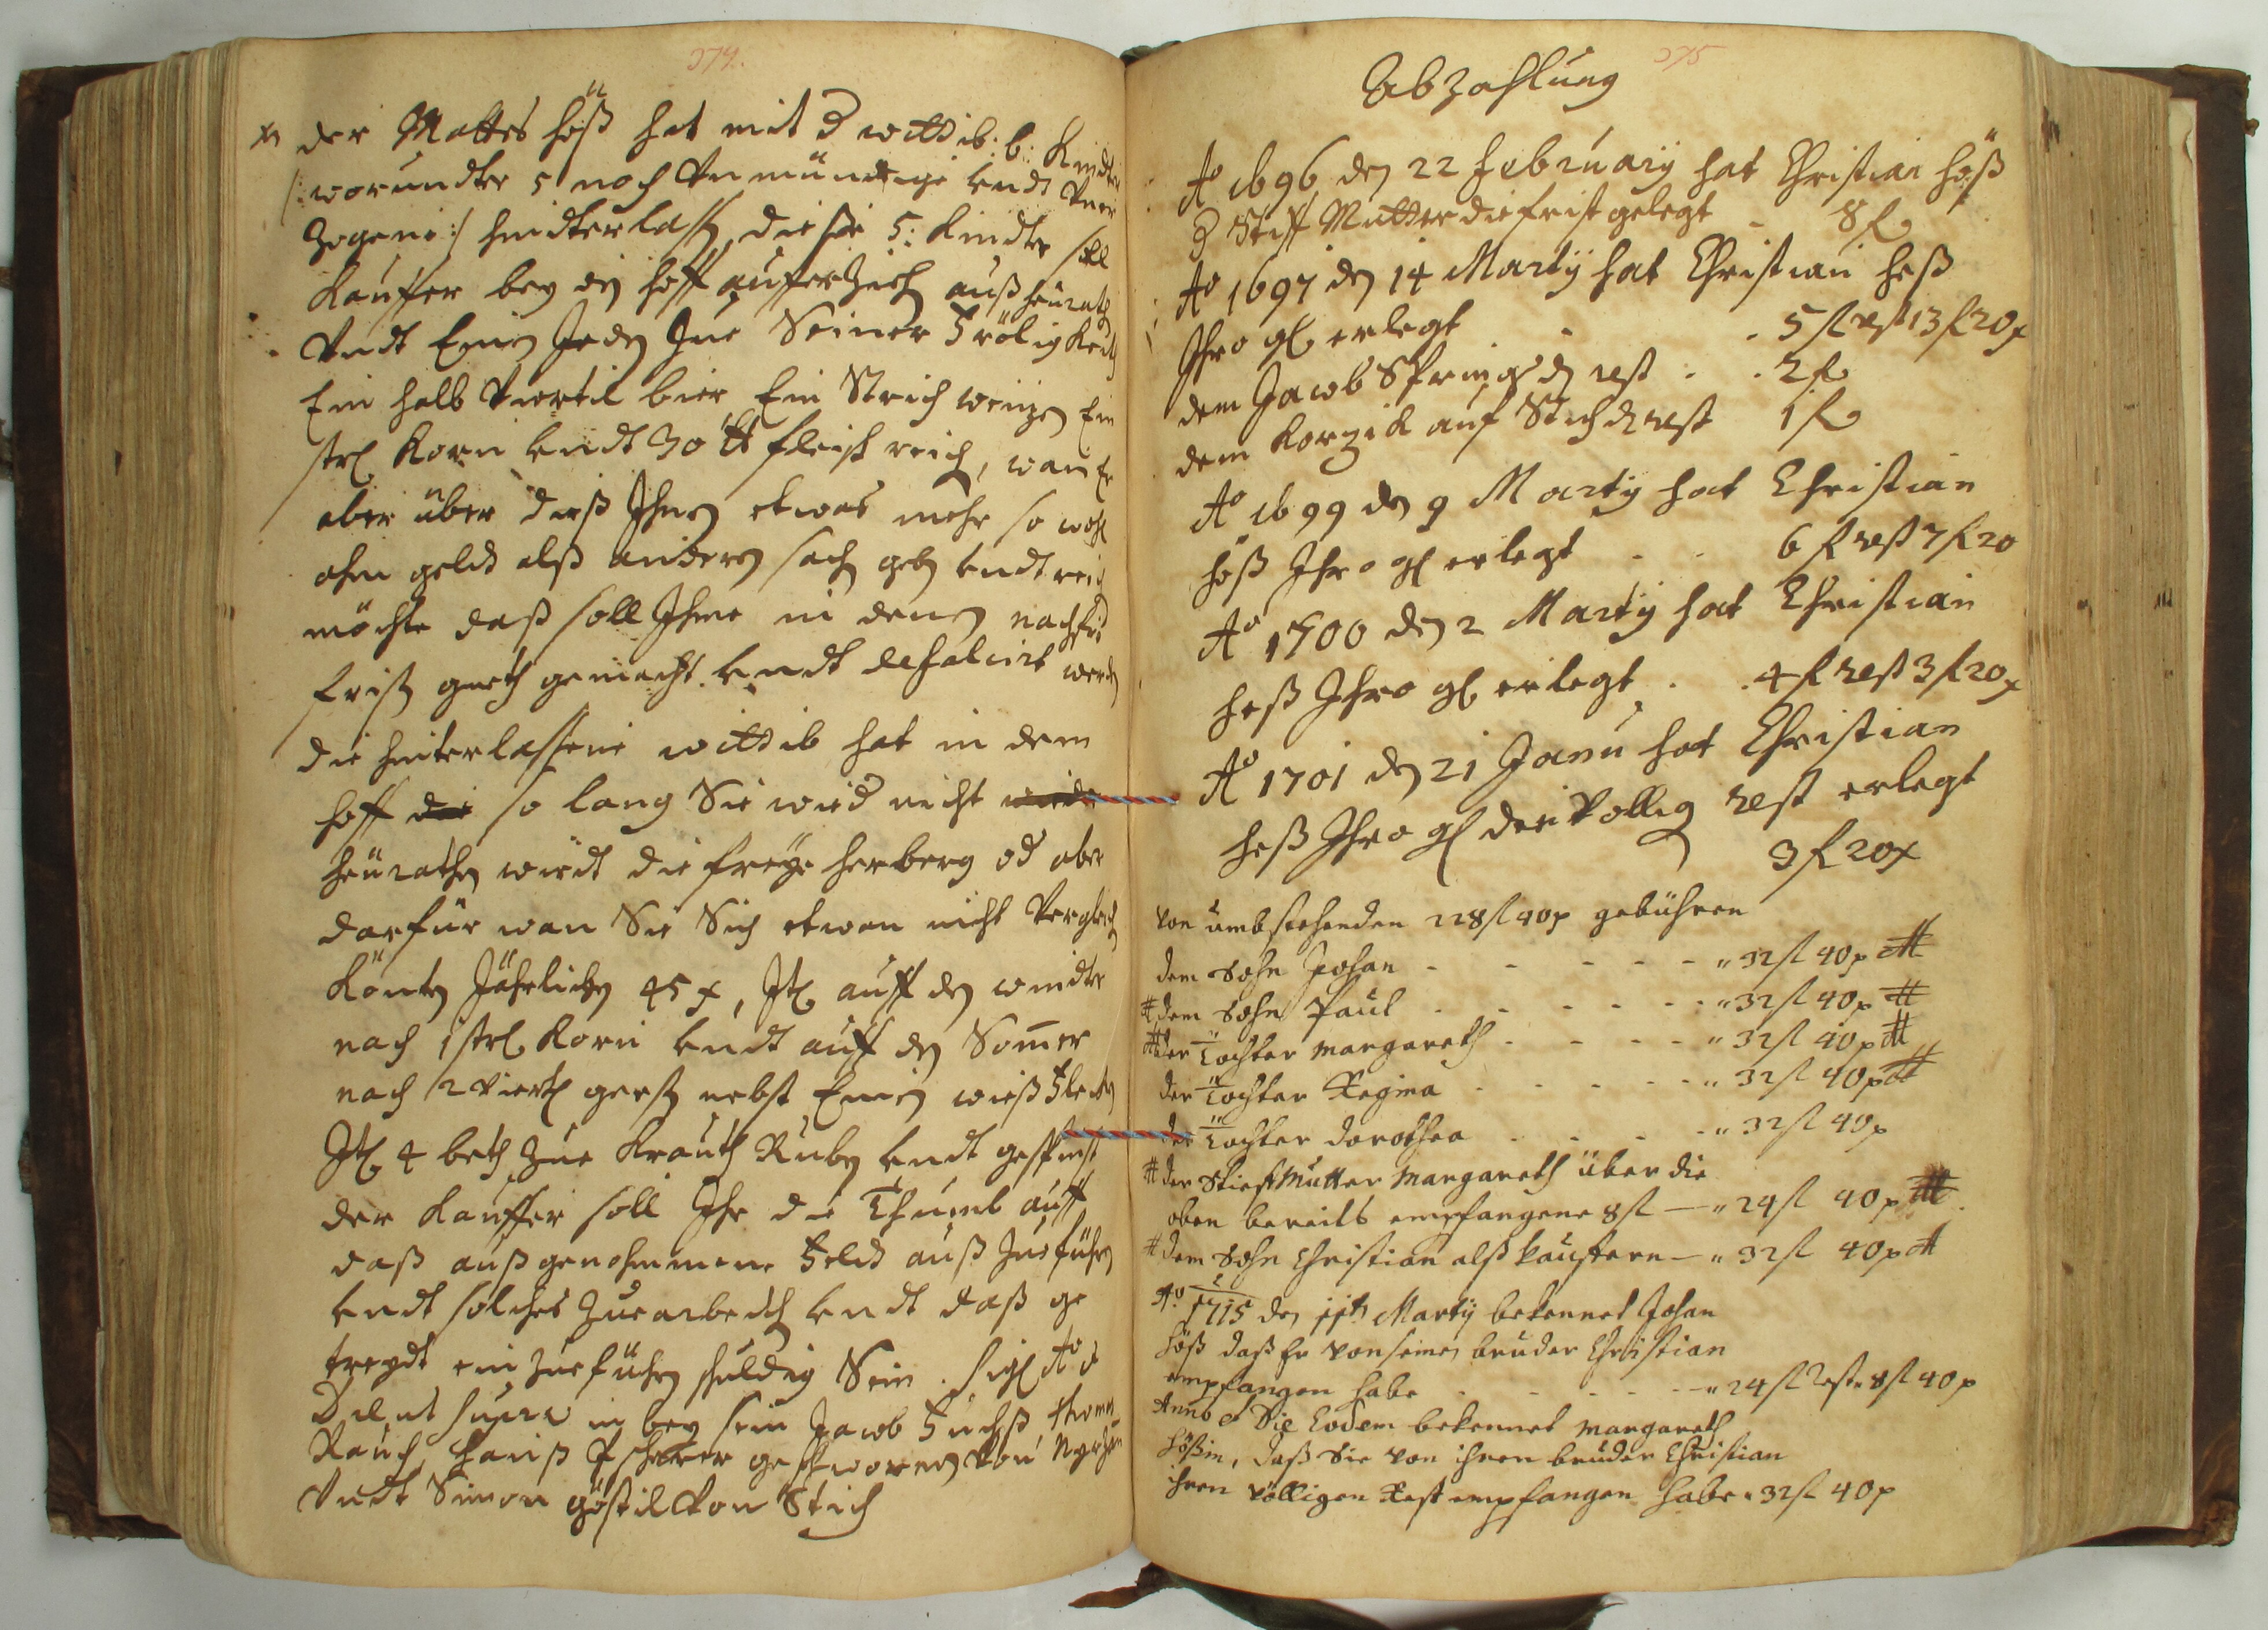 374.
der Mattes Höß hat mit d wittib: 6: Kindter
/: worundter 5 noch Vnmündige undt Vner
zogene :/ hindterlassen, diesse 5: Kindter soll
Kauffer bey dem hoff aufferziehen außheürathen
Vndt Einen Jeden Zue Seiner Frölichkeit
Ein halb Viertel bier Ein Strich weitzen Ein
strl Korn undt 30 tt fleisch reichen, wan Er
aber über dieß Ihnen etwas mehr so wohl
ahn geldt alß anderen sachen geben undt reichen
möchte daß soll Ihme in denen nach
fristen gueth gemacht undt defalcirt werden
die hinterlassene wittib hat in dem
hoff die so lang Sie wied nicht wied
heürathen wirdt die freye herberg od aber
darfür wan Sie Sich etwan nicht Vergleichen
Könten Jährlichen 45 x, Itl auff den windter
nach 1 strl Korn undt auff den Som̄er
nach 2 Viertl gersten nebst Einen
Itl 4 beth zue Krauth Ruben undt
der Kauffer soll Ihr die auff
daß außgenohmmene Feldt außzueführen
undt solches Zuearbeithen undt daß ge
treydt einzueführen schuldig Sein. Sigl Ao &
Die ut supra in bey sein Jacob Fuchß,
Rauch, Hanß geschwornen von
Vndt Simon göstel Von Stich
375
Abzahlung
Ao 1696 den 22 February hat Christian Höß
d Stiff Mutter die frist gelegt - 8 fl
Ao 1697 den 14 Marty hat Christian Heß
Ihro gl erlegt - . 5 fl rest 13 fl 20 x
dem Jacob Springs den rest . . 2 fl
dem Korzik auf Stich den rest 1 fl
Ao 1699 den 9 Marty hat Christian
Höß Ihro gl erlegt . . 6 fl rest 7 fl 20
Ao 1700 den 2 Marty hat Christian
Heß Ihro gl erlegt . . 4 fl rest 3 fl 20 x
Ao 1701 den 21 Janu hat Christian
Heß Ihro gl den Völlig rest erlegt
3 fl 20 x
Von umbstehenden 228 fl 40 x gebühren
dem Sohn Johan - - - - - " 32 fl 40 x #
# dem Sohn Paul . - - - - " 32 fl 40 x #
# der Tochter Margareth . - - - " 32 fl 40 x #
der Tochter Regina - - - - - " 32 fl 40 x #
der Tochter Dorothea - - - - " 32 fl 40 x
# der Stieffmutter Margareth über die
oben bereits empfangene 8 fl — " 24 fl 40 x #
# dem Sohn Christian alß kauffern — " 32 fl 40 x #
Ao 1715 den 11th Marty bekennet Johan
Höß daß Er von seinen bruder Christian
empfangen habe - - - - - " 24 fl Rest. 8 fl 40 x
Anno & Die Eodem bekennet Margareth
Hößin, daß Sie von ihren bruder Christian
ihren völligen Rest empfangen habe " 32 fl 40 x